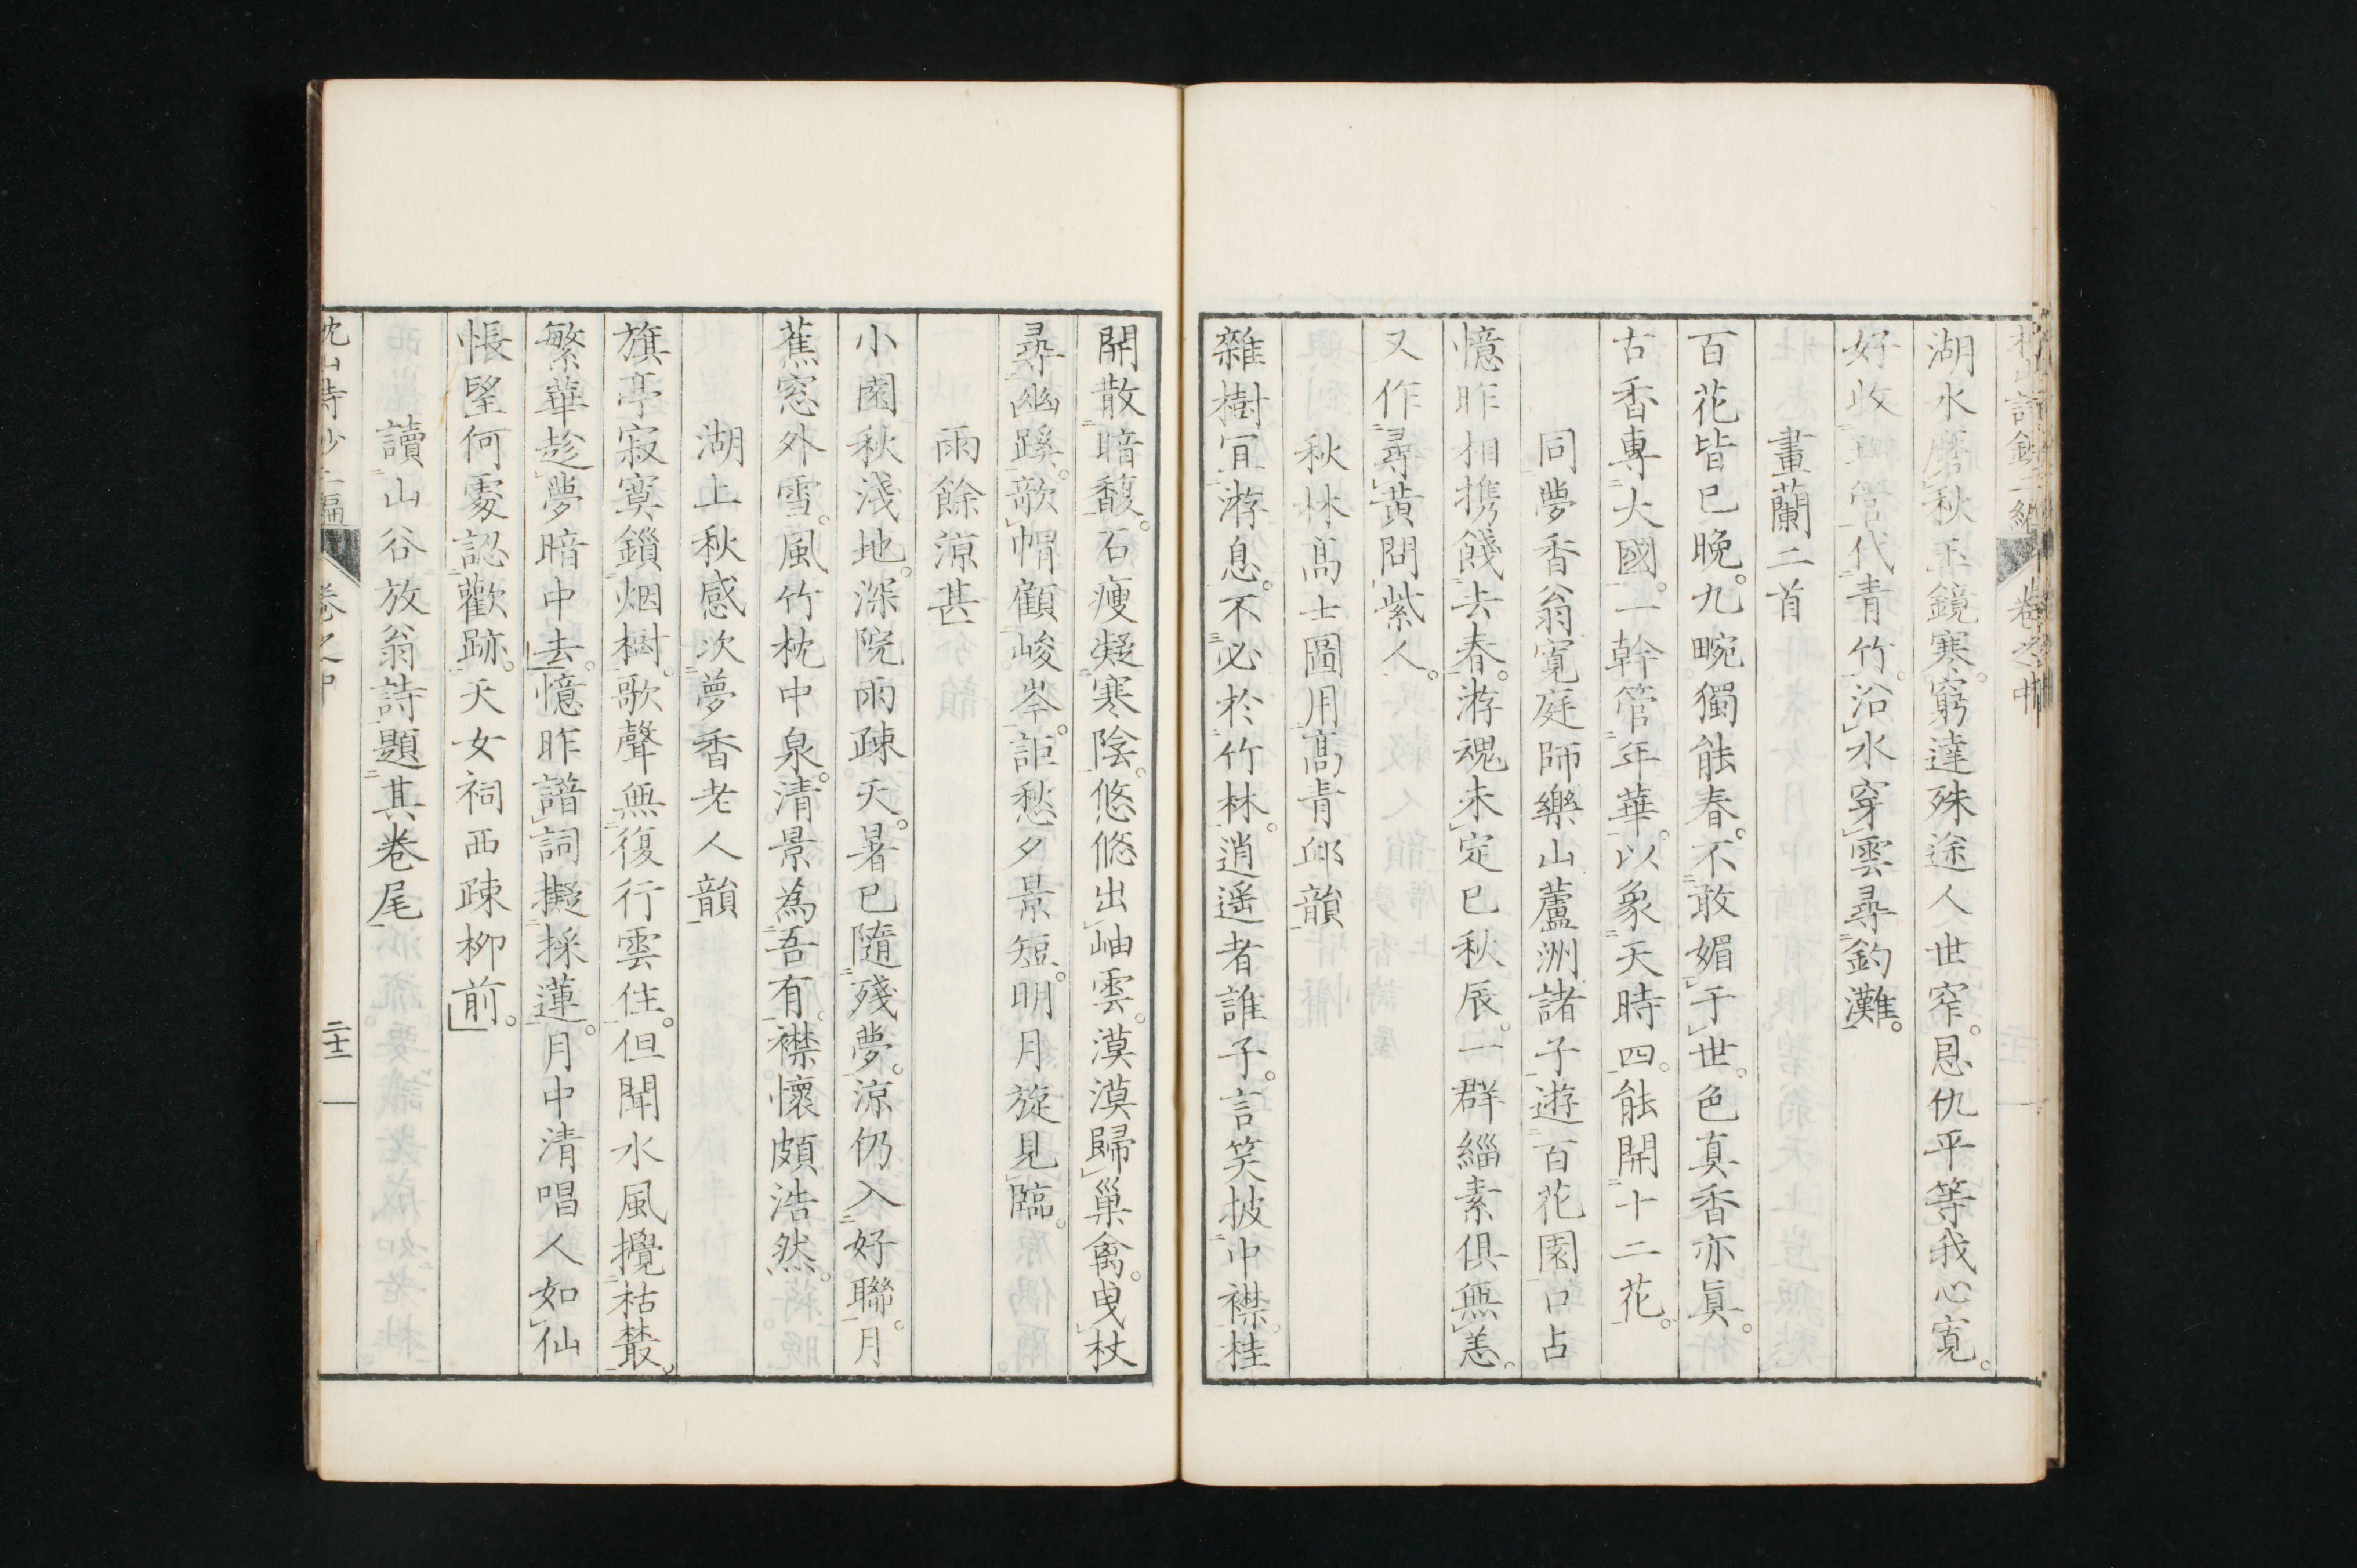 湖水磨秋玉鏡寒。窮達殊途人世窄。恩仇平等我心寛。
好收　管代青竹。沿水穿雲尋釣灘。
畫蘭二首
百花皆已晚。九畹獨能春。不敢媚于世。色真香亦眞。
古香專大國。一幹管年華。以象天時四。能開十二花。
同夢香翁寛庭師樂山蘆洲諸子遊百花園口占
憶昨相携餞去春。游魂未定已秋辰。一群緇素俱無恙。
又作尋黄問紫人。
秋林髙士圖用髙青邱韻
雜樹宜游息。不必於竹林。逍遥者誰子。言笑披巾襟。桂
開散暗馥。石痩凝寒陰。悠悠出岫雲。漠漠歸巢禽。曵杖
尋幽蹊。欹帽顧峻岑。詎愁夕景短。明月旋見臨。
雨餘凉甚
小園秋淺地。深院雨疎天。暑已隨殘夢。涼仍入好聯。月
蕉窓外雪。風竹枕中泉。清景為吾有。襟懷頗浩然。
湖上秋感次夢香老人韻
旗亭寂寞鎖烟樹。歌聲無復行雲住。但聞水風攪枯叢。
繁華趁夢暗中去。憶昨譜詞擬採蓮。月中清唱人如仙
悵望何處認歡跡。天女祠西疎栁前。
讀山谷放翁詩題其卷尾
枕山詩鈔二編　卷之中　二十二